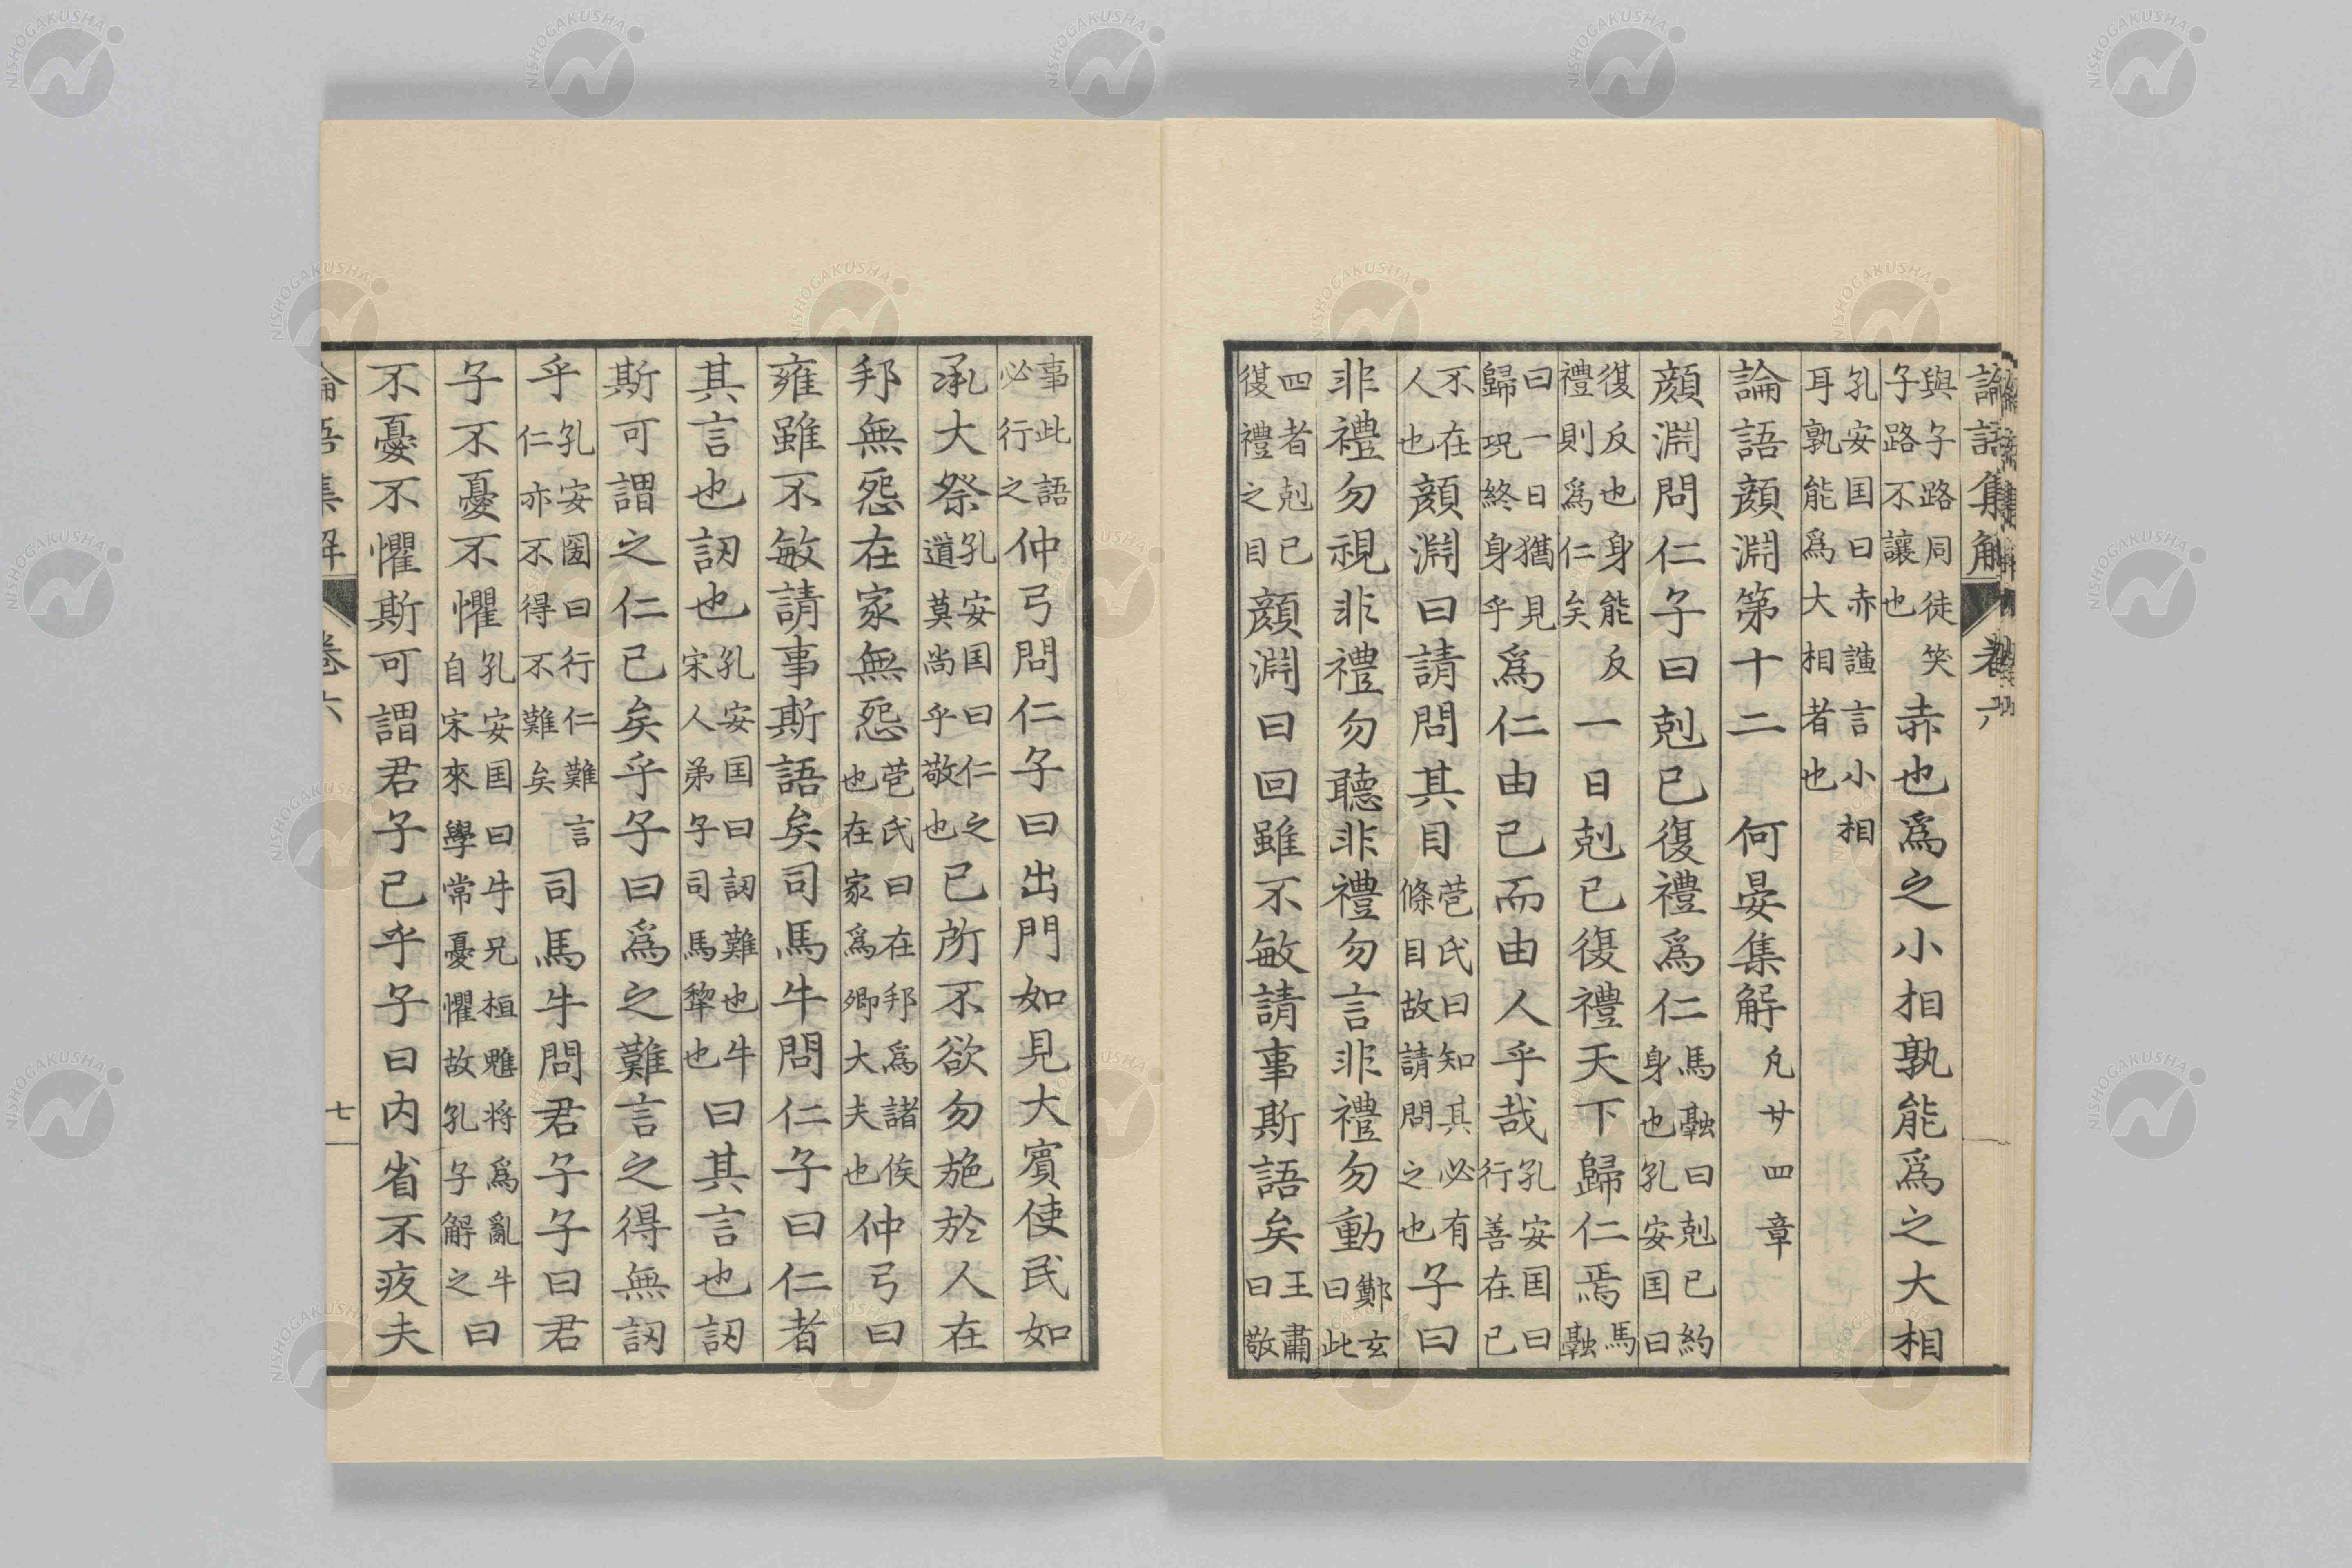 論語集解 卷六
與子路同徒笑子路不讓也赤也爲之小相孰能爲之大相
孔安囯曰赤謹言小相耳孰能爲大相者也
論語顔淵第十二 何晏集解 凡廿四章
顔淵問仁子曰剋己復禮爲仁馬融曰剋己約身也孔安囯曰
復反也身能反禮則爲仁矣一日剋己復禮天下歸仁焉馬融
曰一日猶見歸況終身乎爲仁由己而由人乎哉孔安囯曰行善在己
不在人也顔淵曰請問其目苞氏曰知其必有條目故請問之也子曰
非禮勿視非禮勿聽非禮勿言非禮勿動鄭玄曰此
四者剋己復禮之目顔淵曰回雖不敏請事斯語矣王肅曰敬
事此語必行之仲弓問仁子曰出門如見大賓使民如
承大祭孔安囯曰仁之道莫尚乎敬也己所不欲勿施於人在
邦無怨在家無怨苞氏曰在邦爲諸侯也在家爲卿大夫也仲弓曰
雍雖不敏請事斯語矣司馬牛問仁子曰仁者
其言也訒也孔安囯曰訒難也牛宋人弟子司馬犂也曰其言也訒
斯可謂之仁已矣乎子曰爲之難言之得無訒
乎孔安圀曰行仁難言仁亦不得不難矣司馬牛問君子子曰君
子不憂不懼孔安囯曰牛兄桓魋将爲亂牛自宋來學常憂懼故孔子解之曰
不憂不懼斯可謂君子已乎子曰内省不疚夫
論語集解 卷六 七